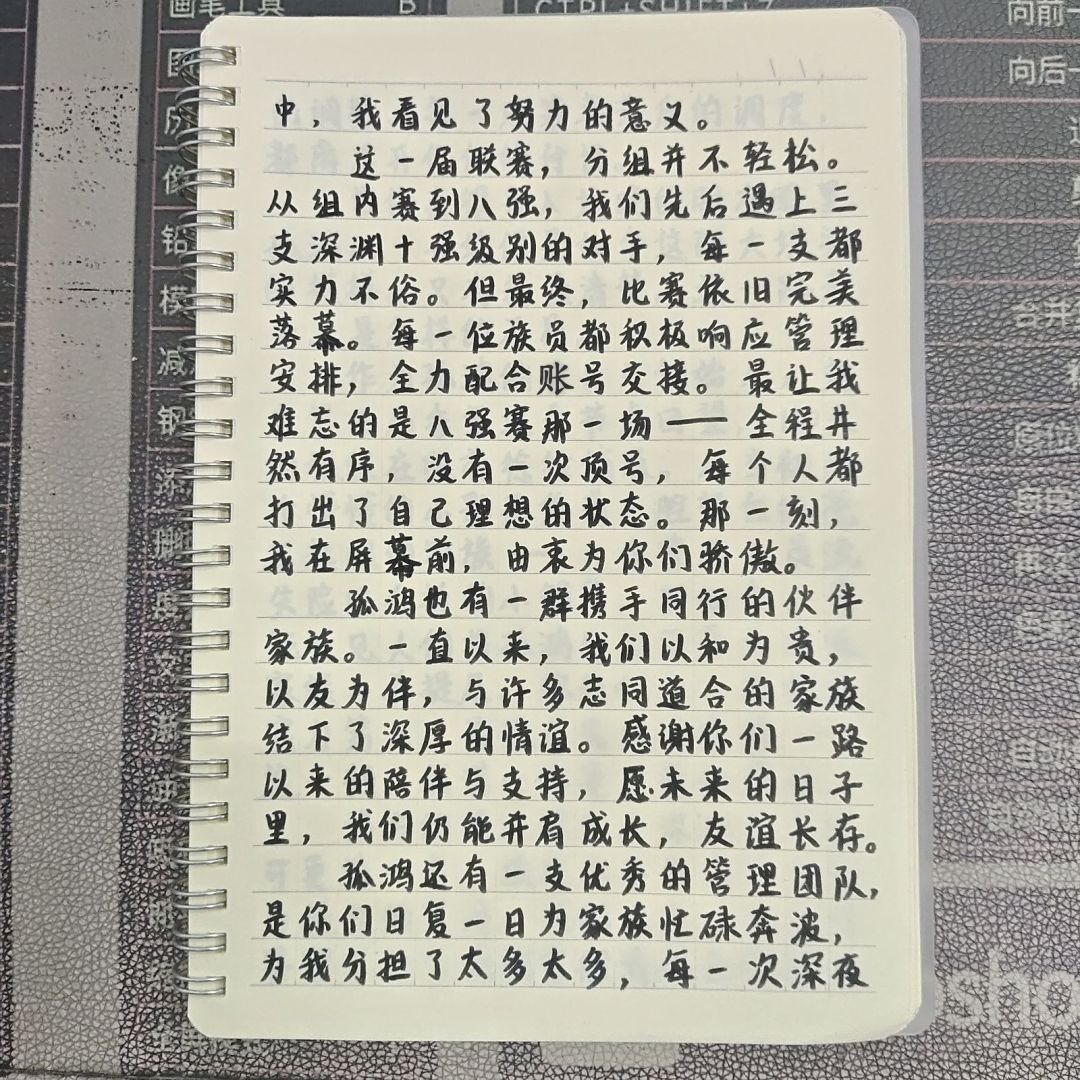 画笔工具 B
CTRL+SHIFT+Z
向前一
向后一
中，我看见了努力的意义。
这一届联赛，分组并不轻松。
从组内赛到八强，我们先后遇上三
支深渊十强级别的对手，每一支都
实力不俗。但最终，比赛依旧完美
落幕。每一位族员都积极响应管理
安排，全力配合账号交接。最让我
难忘的是八强赛那一场——全程井
然有序，没有一次顶号，每个人都
打出了自己理想的状态。那一刻，
我在屏幕前，由衷为你们骄傲。
孤鸿也有一群携手同行的伙伴
家族。一直以来，我们以和为贵，
以友为伴，与许多志同道合的家族
结下了深厚的情谊。感谢你们一路
以来的陪伴与支持，愿未来的日子
里，我们仍能并肩成长，友谊长存。
孤鸿还有一支优秀的管理团队，
是你们日复一日为家族忙碌奔波，
为我分担了太多太多，每一次深夜
sho